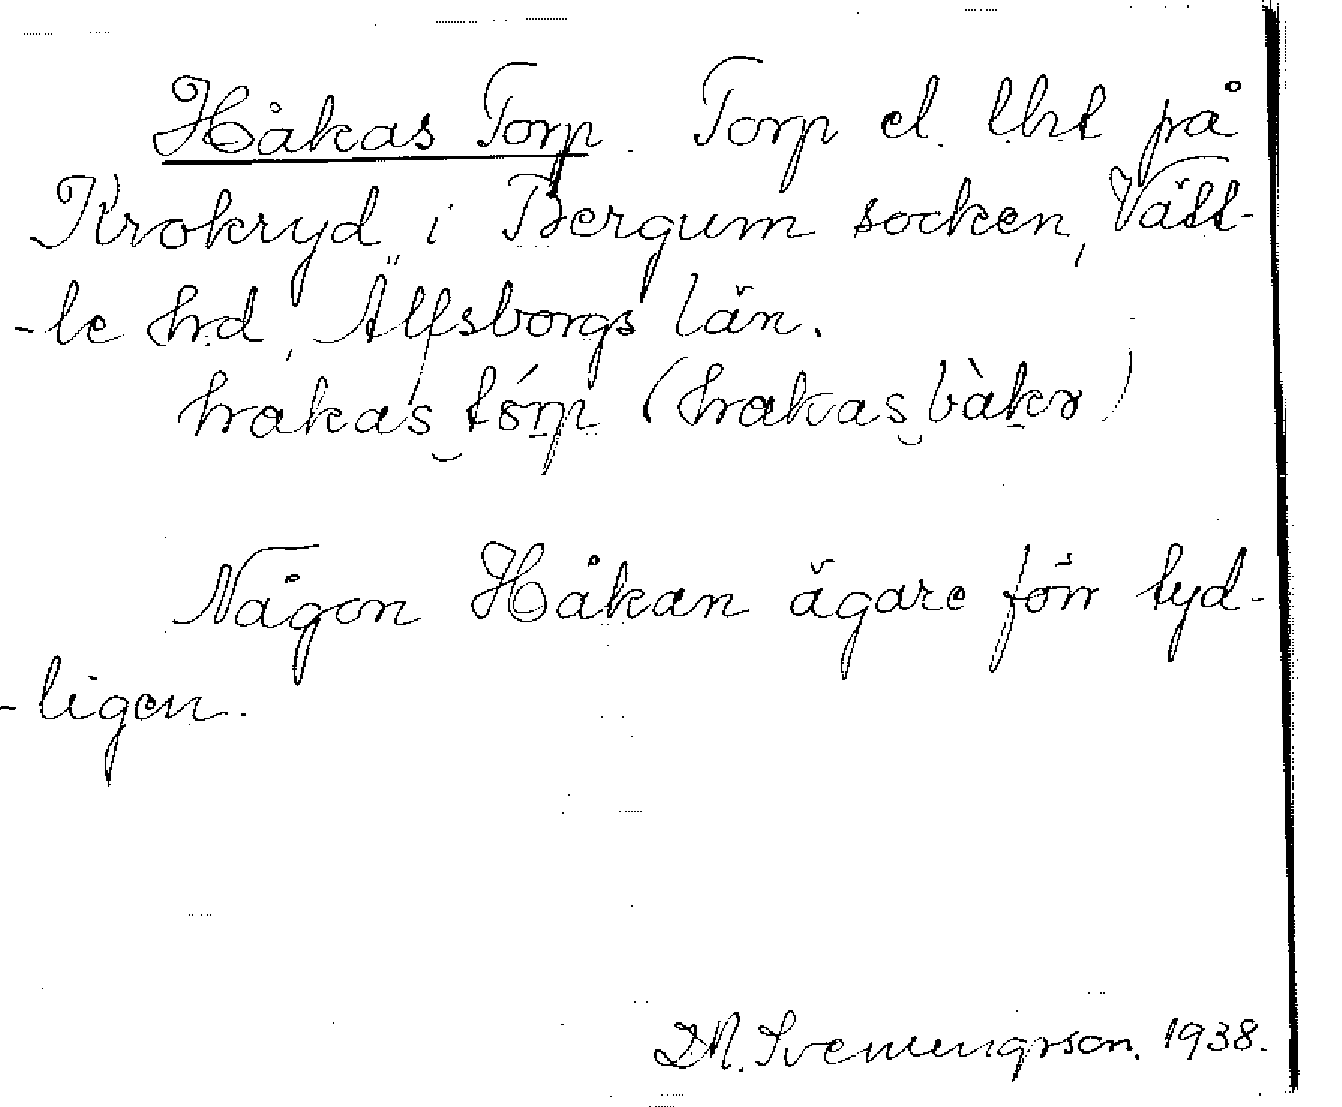 Håkas Torp. Torp el. lht på
Krokryd i Bergum socken, Vätt-
-le hrd, Älfsborgs län.
hakas tórp (hakas bàkɘ)
Någon Håkan ägare förr tyd-
-ligen.
D.N. 1938.